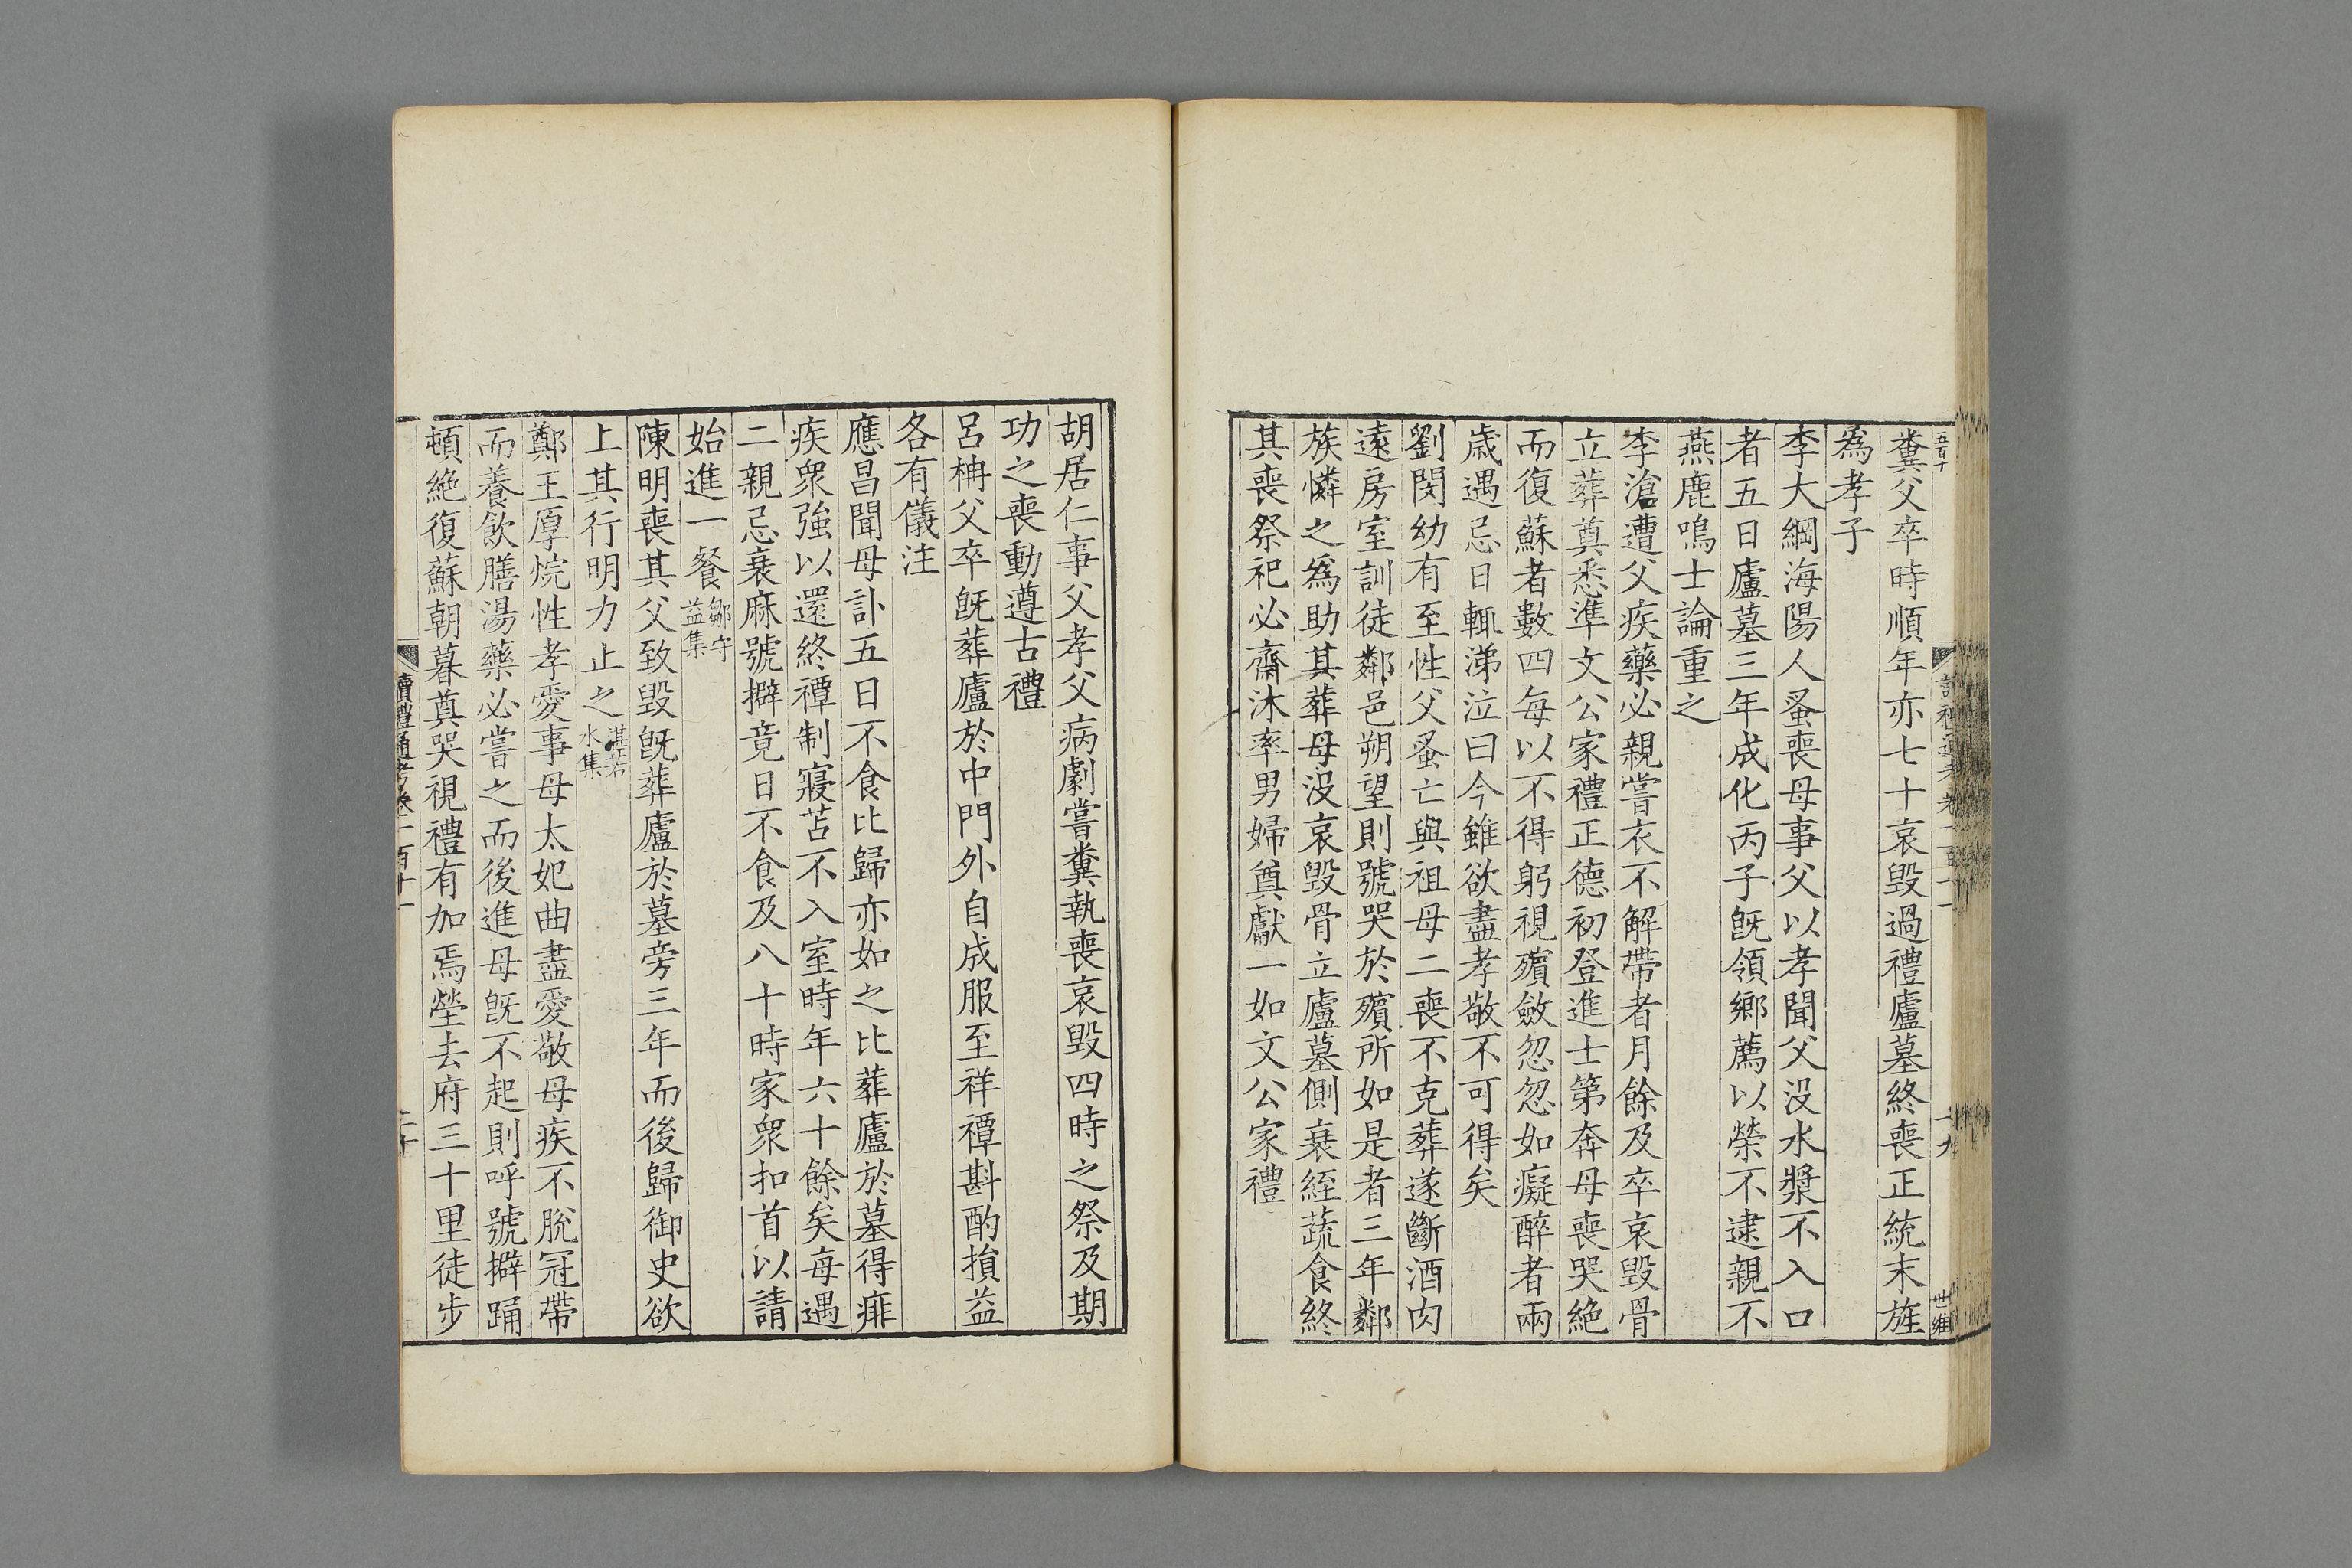 五百十
糞父卒時順年亦七十哀毀過禮廬墓終喪正統末旌
為孝子
李大綱海陽人蚤喪母事父以孝聞父沒水漿不入口
者五日廬墓三年成化丙子旣領鄉薦以榮不逮親不
燕鹿鳴士論重之
李滄遭父疾藥必親嘗衣不解帶者月餘及卒哀毀骨
立葬奠悉準文公家禮正德初登進士第奔母喪哭絶
而復蘇者數四每以不得躬視殯斂忽忽如癡醉者兩
歲遇忌日輒涕泣曰今雖欲盡孝敬不可得矣
劉閔幼有至性父蚤亡與祖母二喪不克葬遂斷酒肉
遠房室訓徒鄰邑朔望則號哭於殯所如是者三年鄰
族憐之為助其葬母沒哀毀骨立廬墓側衰絰蔬食終
其喪祭祀必齋沐率男婦奠獻一如文公家禮
胡居仁事父孝父病劇嘗糞執喪哀毀四時之祭及期
功之喪動遵古禮
呂柟父卒旣葬廬於中門外自成服至祥禫斟酌損益
各有儀注
應昌聞母訃五日不食比歸亦如之比葬廬於墓得痱
疾衆強以還終禫制寢苫不入室時年六十餘矣每遇
二親忌衰麻號擗竟日不食及八十時家衆扣首以請
始進一餐鄒守益集
陳明喪其父致毀旣葬廬於墓旁三年而後歸御史欲
上其行明力止之湛若水集
鄭王厚烷性孝愛事母太妃曲盡愛敬母疾不脫冠帶
而養飲膳湯藥必嘗之而後進母旣不起則呼號擗踊
頓絶復蘇朝暮奠哭視禮有加焉塋去府三十里徒步
讀禮通考卷一百十一